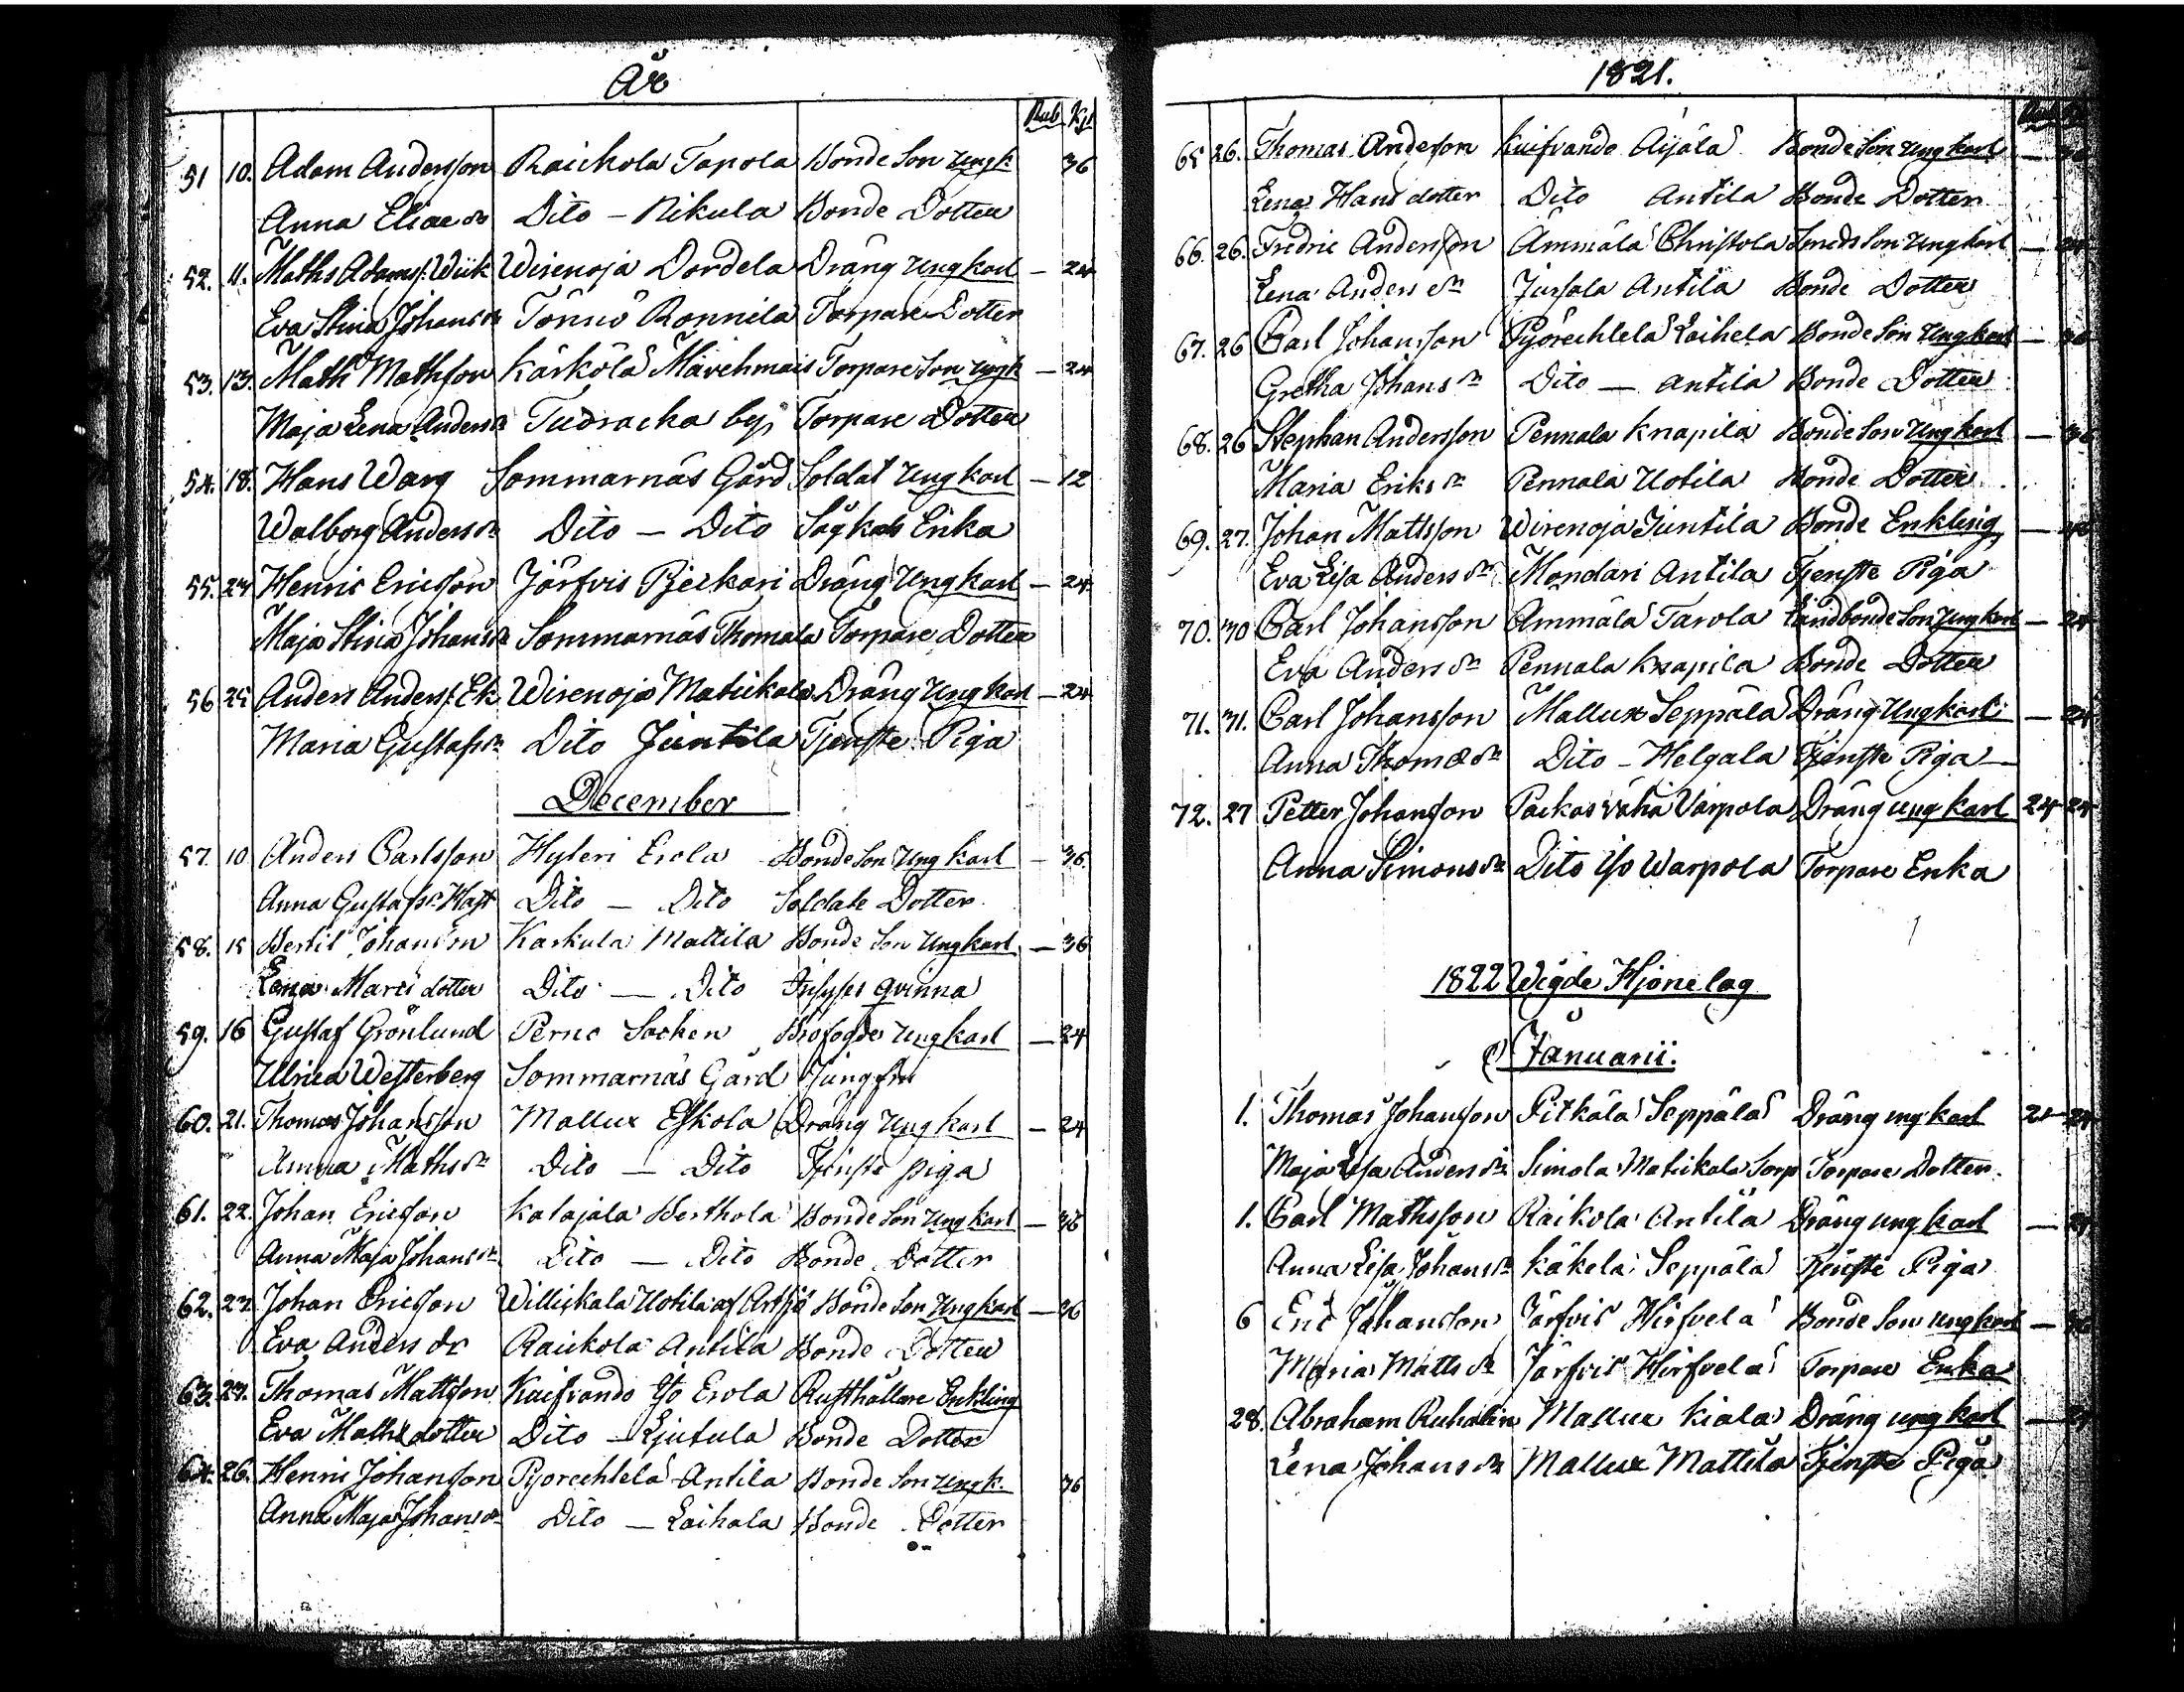 År
Rub Kp
51 10. Adam Andersson Raickola Tapola Bonde Son Ungk 36
Anna Eliae dr Dito - Nikula Bonde Dotter
52. 11. Maths Adamss: Wiik Wirenoja Dordela Dräng Ung karl - 24
Eva Stina Johans dr Tönnö Ronnila Torpare Dotter
53. 13. Math Mathson Kärkölä Mävehmais Torpare Son Ungk - 24
Maja Lena Anders dr Tudracka by, Torpare Dotter
54. 18. Hans Warg Sommarnäs Gård Soldat Ung karl - 12
Walborg Anders dr Dito - Dito Enka
55. 24 Henric Ericsson Järfvis Pjeckari Dräng Ung karl - 24
Maja Stina Johans dr Sommarnäs Thomala Torpare Dotter
56 25 Anders Anderss: Ek Wirenoja Matickala Dräng Ung karl - 24
Maria Gustafs dr Dito Juntila Tjenste Piga
December
57. 10 Anders Carlsson Hyteri Erola Bonde Son Ung karl - 36
Anna Gustafs dr Dito - Dito Soldate Dotter
58. 15 Bertil Johansson Karkula Mattila Bonde Son Ung karl - 36
Lena Marci dotter Dito - Dito Inhyses qvinna
59. 16 Gustaf Grönlund Perno Socken Brofogde Ung karl - 24
Ulrica Westerberg Sommarnäs Gård Jungfru
60. 21. Thomas Johansson Mallux Eskola Dräng Ung karl - 24
Anna Maths dr Dito - Dito Tjenste piga
61. 22. Johan Ericsson Katajala Berthola Bonde Son Ung karl - 36
Anna Maja Johans dr Dito - Dito Bonde Dotter
62. 23. Johan Ericsson Willickala Uotila af Artsjö Bonde Son Ung karl - 36
Eva Anders dr Raickola Antila Bonde Dotter
63. 23. Thomas Mattson Kuifvando Yso Erola Rusthållare Enkling
Eva Maths dotter Dito - Ljutula Bonde Dotter
64. 26. Henric Johansson Pyörechtelä Antila Bonde Son Ungk. 36
Anna Maja Johans dr Dito - Laihala Bonde Dotter
1821.
65 26. Thomas Anderson Kuifvando Äijälä Bonde Son Ung karl - 36
Lena Hans dotter Dito Antila Bonde Dotter
66. 26. Fredric Andersson Ämmälä Christola Smeds Son Ung karl - 24
Lena Anders dr Jursala Antila Bonde Dotter
67. 26 Carl Johansson Pyörechtelä Laihela Bonde Son Ung karl - 36
Gretha Johans dr Dito - Antila Bonde Dotter
68. 26 Stephan Andersson Pennala Knapila Bonde Son Ung karl - 36
Maria Eriks dr Pennala Uotila Bonde Dotter
69. 27. Johan Mattsson Wirenoja Juntila Bonde Enkling -
Eva Lisa Anders dr Möndari Antila Tjenste Piga
70. 30 Carl Johansson Ämmälä Tarola Landbonde Son Ung karl - 24
Eva Anders dr Pennala Knapila Bonde Dotter
71. 31. Carl Johansson Mallux Seppälä Dräng Ung karl - 24
Anna Thomæ dr Dito - Helgala Tjenste Piga
72. 27 Petter Johansson Packas vähä Varpola Dräng ung karl 24 24
Anna Simons dr Dito Yso Warpola Torpare Enka
1822 Wigde Hjonelag
Januarii.
1. Thomas Johansson Pitkälä Seppälä Dräng ung karl 24
Maja Lisa Anders dr Simola Matickala Torp Torpare Dotter
1. Carl Mathsson Raikola Antila Dräng ung karl - 24
Anna Lisa Johans dr Käkelä Seppälä Tjenste Piga
6 Eric Johansson Järfvis Hirfvelä Bonde Son Ung karl - 36
Maria Matts dr Järfvis Hirfvelä Torpare Enka
28. Abraham Ruhalin Mallux Kiala Dräng ung karl - 24
Lena Johans dr Mallux Mattila Tjenste Piga